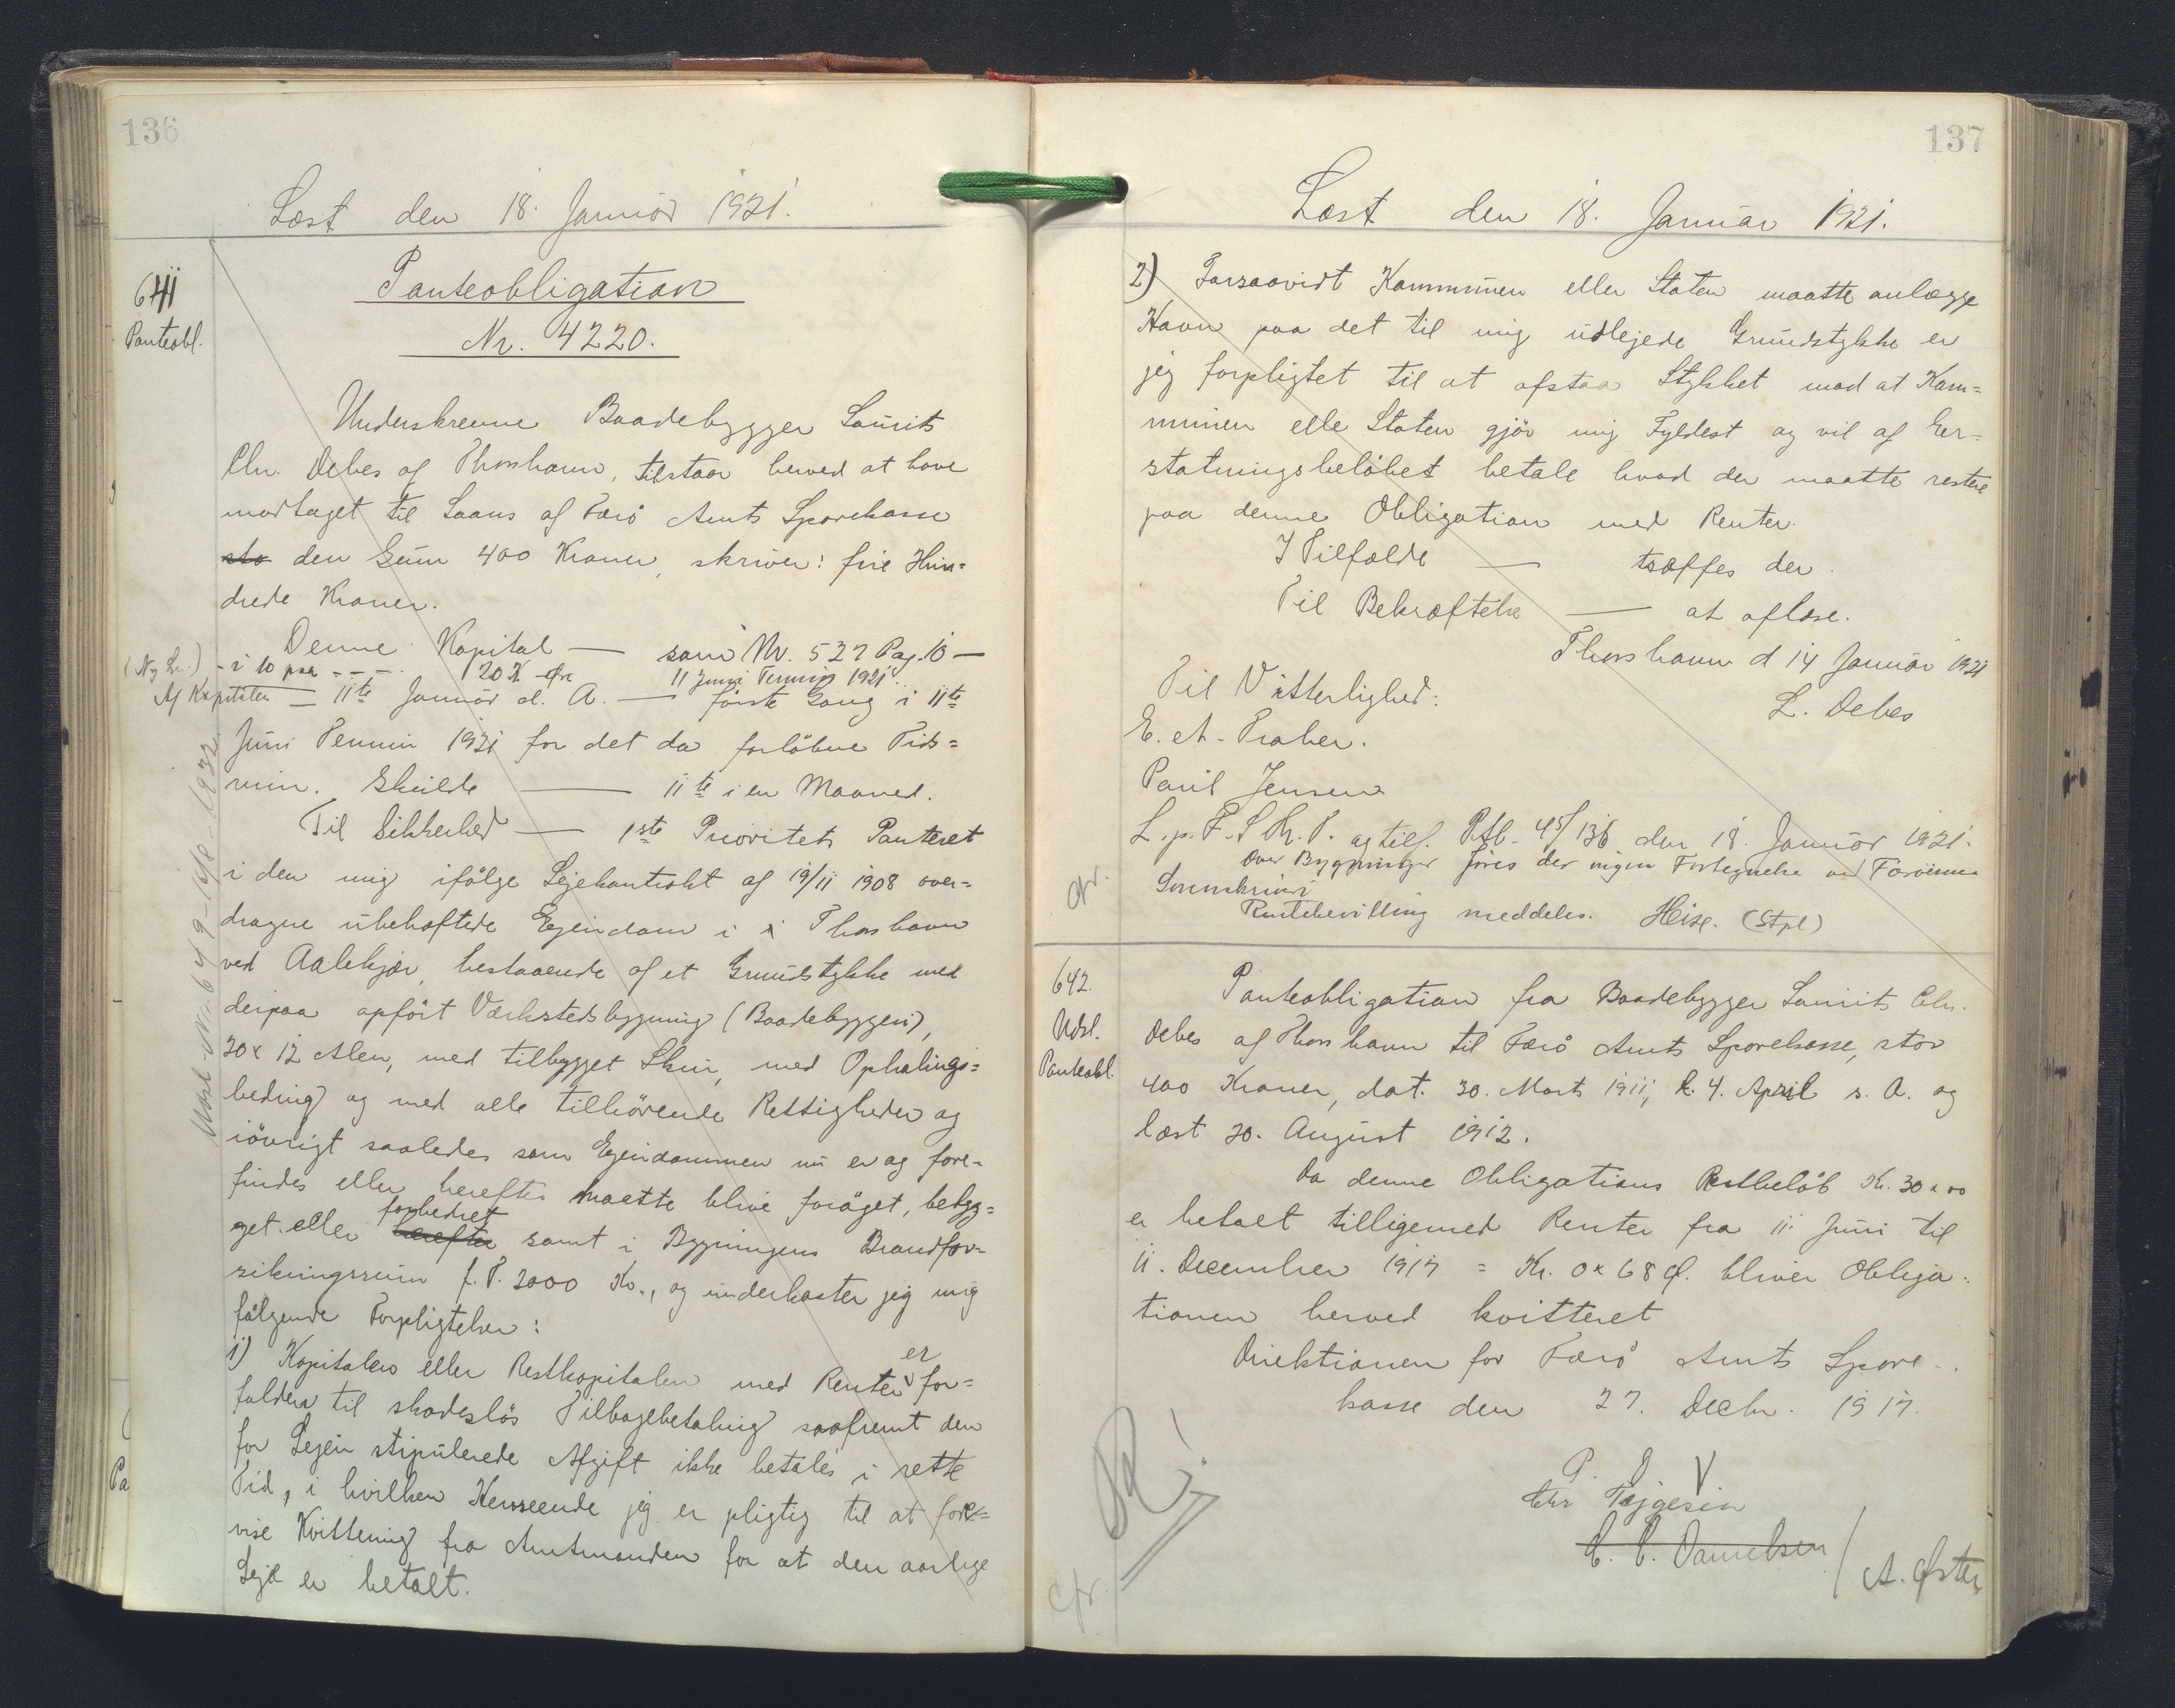 136
Læst den 18. Januar 1921.
641
Panteobl.
Panteobligation
Nr. 4220.
Underskrevne Baadebygger Laurits
Chr. Debes af Thorshavn, tilstaar herved at have
modtaget til Laans af Færö Amts Sparekasse
sto den Sum 400 Kroner, skriver: fire Hun=
drede Kroner.
Denne Kapital — som Nr. 527 Pag. 10 —
(Ny L.) - i 10 paa - - - 20 K Øre 11 Juni Termin 1921
Af Kapitalen — 11te Januar d. A. — förste Gang i 11te
Juni Termin 1921 for det da forlöbne Tids=
rum. Skulde — 11te i en Maaned.
Til Sikkerhed — 1ste Prioritets Panteret
i den mig ifölge Lejekontrakt af 19/11 1908 over=
dragne ubehæftede Ejendom i Thorshavn
ved Aalekjær, bestaaende af et Grundstykke med
derpaa opfört Værkstedsbygning (Baadebyggeri),
20 x 12 Alen, med tilbygget Skur, med Ophalings=
beding og med alle tilhörende Rettigheder og
iövrigt saaledes som Ejendommen nu er og fore=
findes eller herefter maatte blive foröget, bebyg=
get eller herefter forbedret samt i Bygningens Brandfor=
sikringssum f. T. 2000 Kr., og underkaster jeg mig
fölgende Forpligtelser:
1) Kapitalen eller Restkapitalen med Renter er for=
falden til skadeslös Tilbagebetaling saafremt den
for Lejen stipulerede Afgift ikke betales i rette
Tid, i hvilken Henseende jeg er pligtig til at fore=
vise Kvittering fra Amtmanden for at den aarlige
Leje er betalt.
Udsl. Nr. 649 - 14/8 - 1932
Pa
137
Læst den 18. Januar 1921.
2) Forsaavidt Kommunen eller Staten maatte anlægge
Havn paa det til mig udlejede Grundstykke er
jeg forpligtet til at afstaa Stykket mod at Kom=
munen elle Staten gjör mig Fyldest og vil af Er=
statningsbelöbet betale hvad der maatte restere
paa denne Obligation med Renter.
I Tilfælde — træffes der.
Til Bekræftelse — at aflæse.
Thorshavn d 14 Januar 1921
L. Debes
Til Vitterlighed:
E. A.
Paul Jensen
L. p. F. S. Th. T. og tilf. Ptb. 45/136 den 18. Januar 1921.
Over Bygninger föres der ingen Fortegnelse ved Færöernes
Sorenskriveri
Rentebevilling meddeles. Heise. (Stpl)
cfr.
642.
Udsl.
Panteobl.
Panteobligation fra Baadebygger Laurits Chr.
Debes af Thorshavn til Færö Amts Sparekasse, stor
400 Kroner, dat. 30. Marts 1911, l. 4. April s. A. og
læst 20. August 1912.
Da denne Obligations Restbelöb Kr. 30 x 00
er betalt tilligemed Renter fra 11 Juni til
11. December 1917 = Kr. 0 x 68 Ø. bliver Obliga=
tionen herved kvitteret
Direktionen for Færö Amts Spare=
kasse den 27. Decbr. 1917.
P. V.
Chr Tygesen
C. C. Danielsen / A. Øster
cfr.